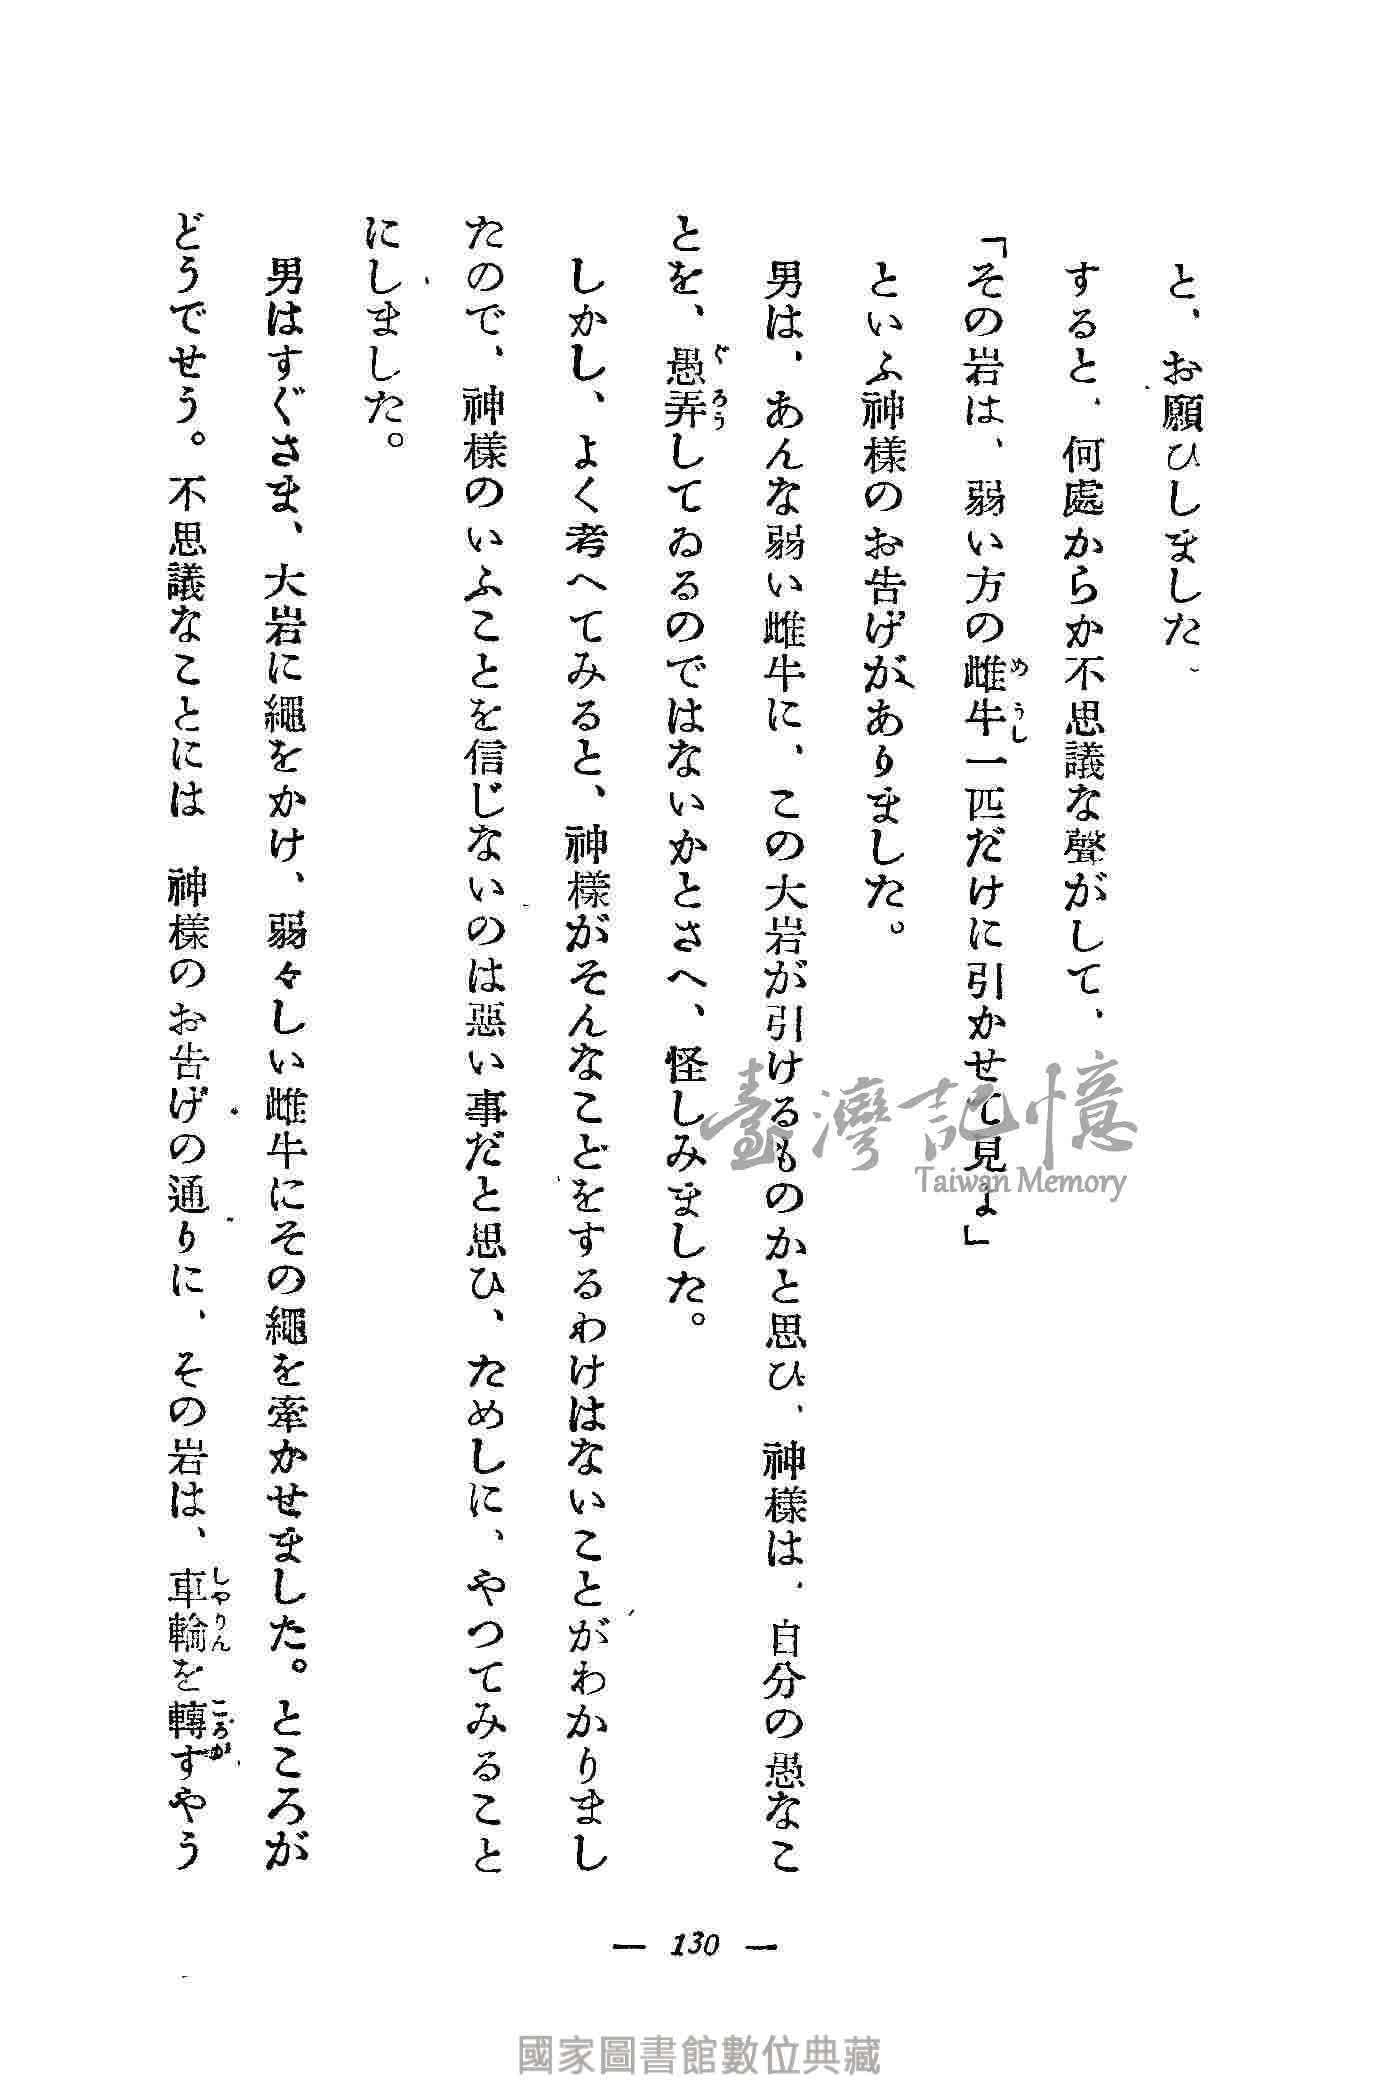 と、お願ひしました。
すると、何處からか不思議な聲がして、
「その岩は、弱い方の雌牛一匹だけに引かせて見よ」
めうし
といふ神様のお告げがありました。
男は、あんな弱い雌牛に、この大岩が引けるものかと思ひ、神様は、自分の愚なこ
とを、愚弄してゐるのではないかとさへ、怪しみました。
ぐろう
しかし、よく考へてみると、神様がそんなことをするわけはないことがわかりまし
たので、神様のいふことを信じないのは惡い事だと思ひ、ためしに、やつてみること
にしました。
男はすぐさま、大岩に繩をかけ、弱々しい雌牛にその繩を牽かせました。ところが
どうでせう。不思議なことには　神様のお告げの通りに、その岩は、車輪を轉すやう
しやりん
ころが
— 130 —
臺灣記憶
Taiwan Memory
國家圖書館數位典藏